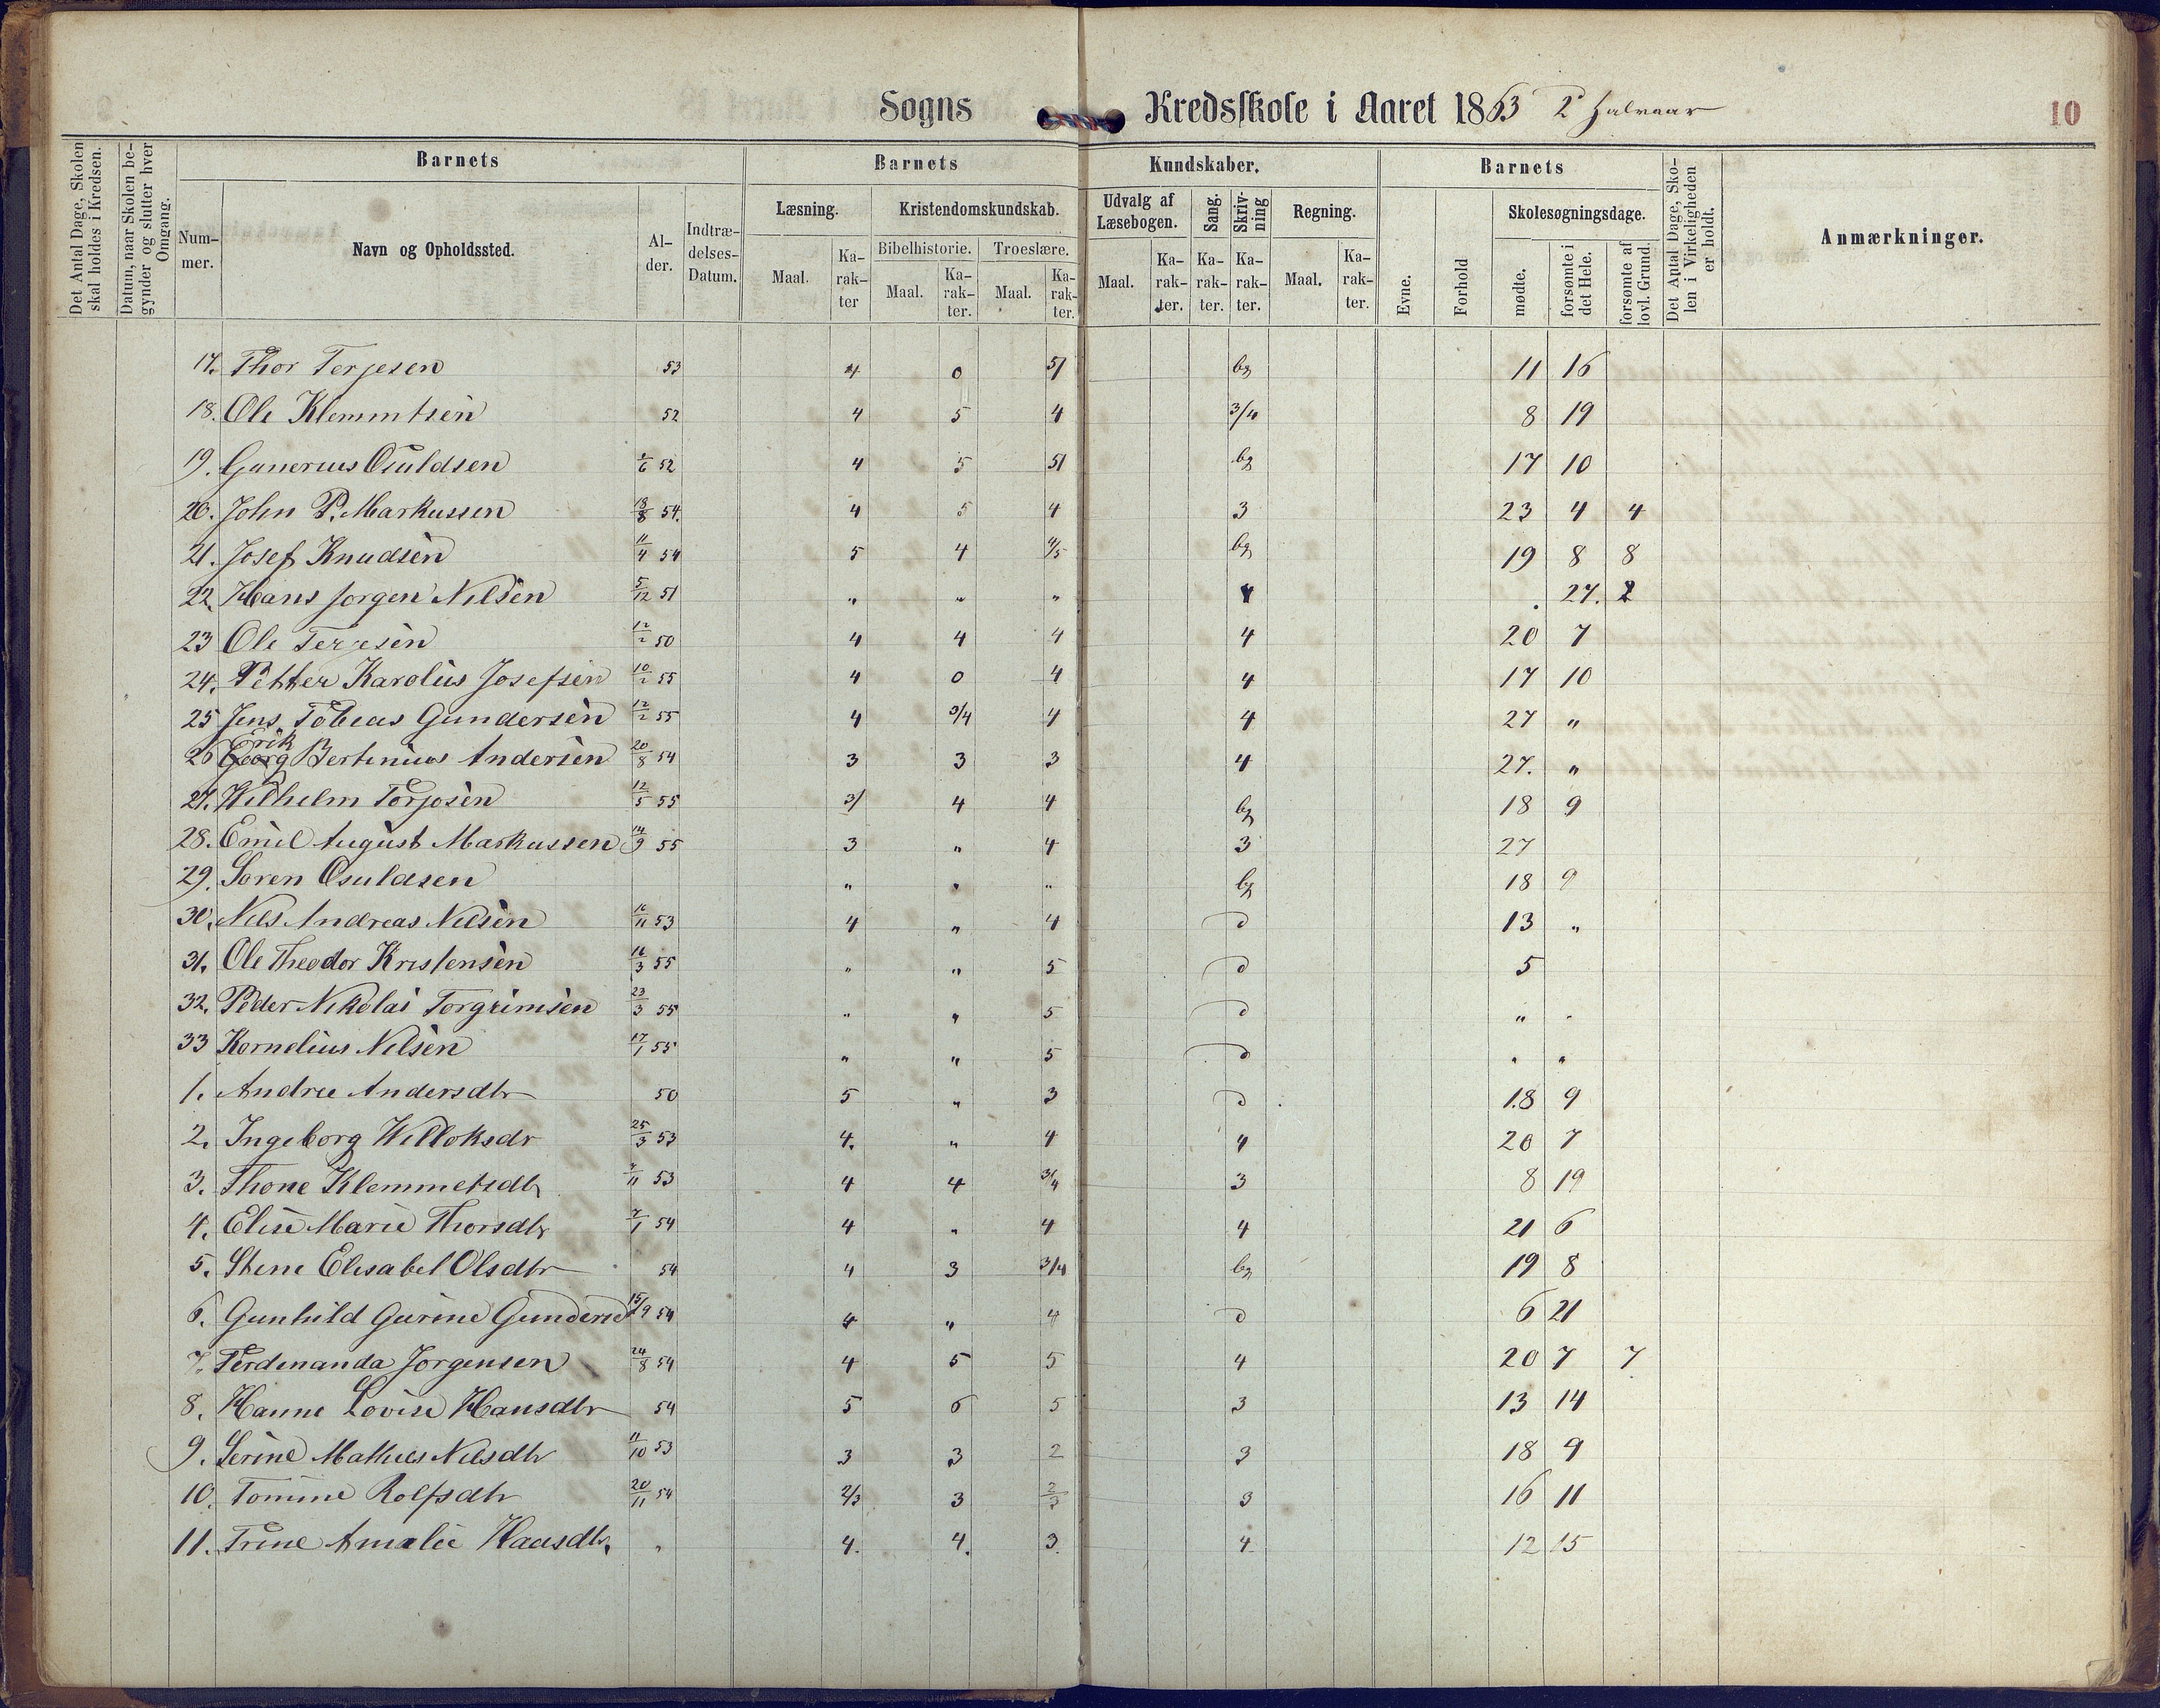 Sogns Kredsskole i Aaret 1863 2 halvaar 10
Det Antal Dage, Skolen skal holdes i Kredsen.
Datum, naar Skolen begynder og slutter hver Omgang.
Barnets Barnets Kundskaber. Barnets
Nummer. Navn og Opholdssted. Alder. Indtrædelses-Datum.
Læsning. Kristendomskundskab. Udvalg af Læsebogen. Sang. Skrivning Regning. Skolesøgningsdage.
Bibelhistorie. Troeslære.
Maal. Karakter Maal. Karakter. Maal. Karakter. Maal. Karakter. Karakter. Karakter. Maal. Karakter. Evne. Forhold mødte. forsømte i det Hele. forsømte af lovl. Grund.
Det Antal Dage, Skolen i Virkeligheden er holdt.
Anmærkninger.
17. Thor Terjesen 53 4 0 5/ bg 11 16
18. Ole Klemmtsen 52 4 5 4 3/4 8 19
19. Gunerius Osuldsen 52 4 5 5/ bg 17 10
20. John P. Markussen 13/8 54. 4 5 4 3 23 4 4
21. Josef Knudsen 11/4 54 5 4 4/5 bg 19 8 8
22. Hans Jorgen Nilsen 5/12 51 " " " 4 . 27. 2
23 Ole Terjesen 12/2 50 4 4 4 4 20 7
24. Petter Karolius Josefsen 10/2 55 4 0 4 4 17 10
25 Jens Tobias Gundersen 12/2 55 4 3/4 4 4 27 "
26 Georg Erik Bertinius Andersen 20/8 54 3 3 3 4 27. "
27. Wilhelm Torjosen 12/5 55 3/ 4 4 bg 18 9
28. Emil August Markussen 14/9 55 3 " 4 3 27
29. Soren Osuldsen " " " bg 18 9
30. Nels Andreas Nelsen 16/11 53 4 " 4 d 13 "
31. Ole Theodor Kristensen 16/3 55 " " 5 d 5
32. Peder Nikolai Torgrimsen 23/3 55 " " 5 d " "
33 Kornelius Nelsen 17/1 55 " " 5 d " "
1. Andree Andersdtr 50 5 " 3 d 18 9
2. Ingeborg Willoksdr 25/3 53 4. " 4 4 20 7
3. Thone Klemmetsdtr 7/11 53 4 4 3/4 3 8 19
4. Elise Marie Thorsdtr 7/1 54 4 " 4 4 21 6
5. Stene Elesabel Olsdtr 54 4 3 3/4 bg 19 8
6. Gunhild Gurine Gundersd 15/9 54 4 " 4 d 6 21
7. Ferdenanda Jorgensen 24/8 54 4 5 5 4 20 7 7
8. Hanne Lovise Hansdtr 54 5 6 5 3 13 14
9. Serine Mathies Nelsdtr 11/10 53 3 3 2 3 18 9
10. Tomine Rolfsdtr 20/11 54 2/3 3 2/3 3 16 11
11. Trine Amalie Haasdtr. " 4. 4. 3. 4 12 15